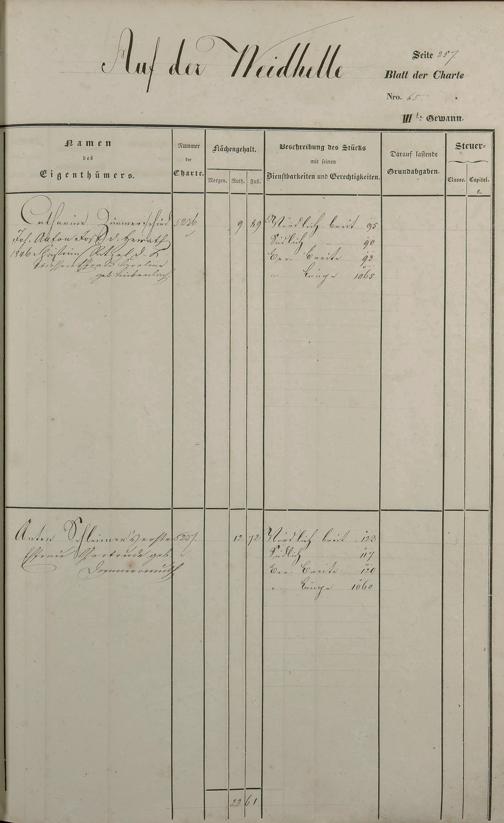 Auf der Weidhelle
Seite 257
Blatt der Charte
Nro. 65
III te Gewann.
Namen
des
Eigenthümers.
Nummer
der
Charte.
Flächengehalt.
Morgen. Ruth. Fuß.
Beschreibung des Stücks
mit seinen
Dienstbarkeiten und Gerechtigkeiten.
Darauf lastende
Grundabgaben.
Steuer-
Classe. Capital.
Catharina 5236 9 89 Nördlich breit 95
Joh. Anton Südlich 90
1846 Christian d. Der Breite 92
" Länge 1065
geb.
Anton 5237 12 72 Nördlich breit 123
Ehefrau Gertrude geb. Südlich 117
Dommermuth Der Breite 120
" Länge 1060
22 61